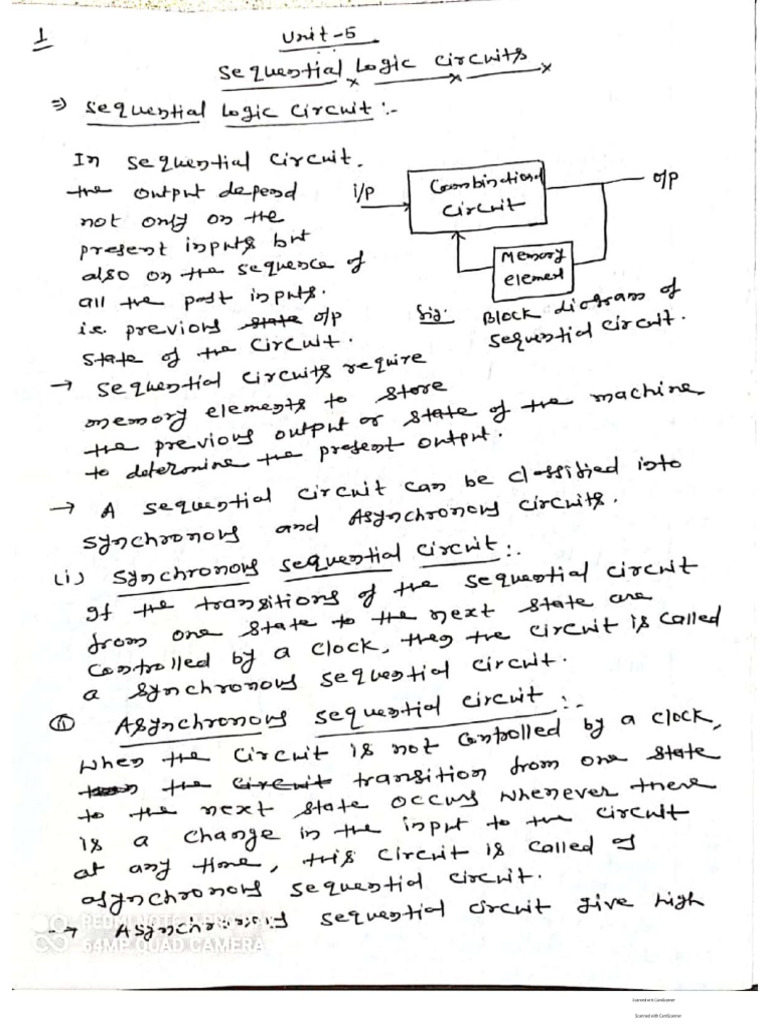 1
Unit-5
Sequential Logic Circuits
⇒ Sequential Logic Circuit :-
In Sequential Circuit.
the output depend
not only on the
present inputs but
also on the sequence of
all the past inputs.
i.e. previous state o/p
state of the circuit.
i/p
Combinational
circuit
o/p
Memory
element
fig: Block diagram of
Sequential circuit.
→ Sequential circuits require
memory elements to store
the previous output or state of the machine
to determine the present output.
→ A sequential circuit can be classified into
synchronous and Asynchronous circuits.
(i) Synchronous sequential circuit :-
If the transitions of the sequential circuit
from one state to the next state are
controlled by a clock, then the circuit is called
a synchronous sequential circuit.
(ii) Asynchronous sequential circuit :-
When the circuit is not controlled by a clock,
the circuit transition from one state
to the next state occurs whenever there
is a change in the input to the circuit
at any time, this circuit is called as
asynchronous sequential circuit.
→ Asynchronous sequential circuit give high
REDMI NOTE
64MP QUAD CAMERA
Scanned with CamScanner
Scanned with CamScanner